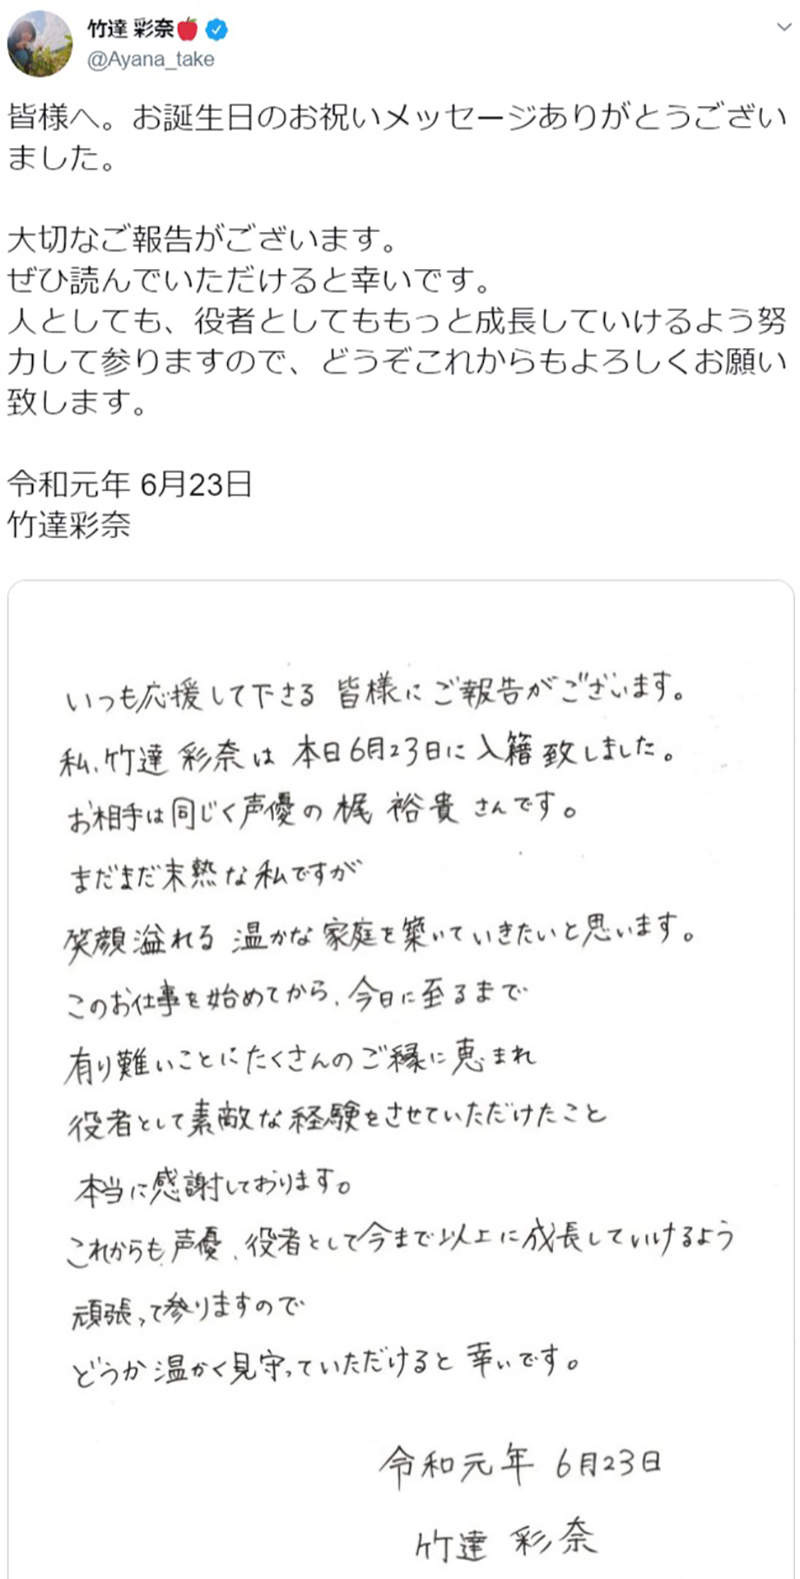 竹達 彩奈🍎
@Ayana_take
皆様へ。お誕生日のお祝いメッセージありがとうござい
ました。
大切なご報告がございます。
ぜひ読んでいただけると幸いです。
人としても、役者としてももっと成長していけるよう努
力して参りますので、どうぞこれからもよろしくお願い
致します。
令和元年 6月23日
竹達彩奈
いつも応援して下さる 皆様にご報告がございます。
私、竹達 彩奈は 本日6月23日に入籍致しました。
お相手は同じく声優の 梶 裕貴 さんです。
まだまだ未熟な私ですが
笑顔溢れる 温かな家庭を築いていきたいと思います。
このお仕事を始めてから、今日に至るまで
有り難いことにたくさんのご縁に恵まれ
役者として素敵な経験をさせていただけたこと
本当に感謝しております。
これからも声優、役者として今まで以上に成長していけるよう
頑張って参りますので
どうか温かく見守っていただけると幸いです。
令和元年 6月23日
竹達 彩奈